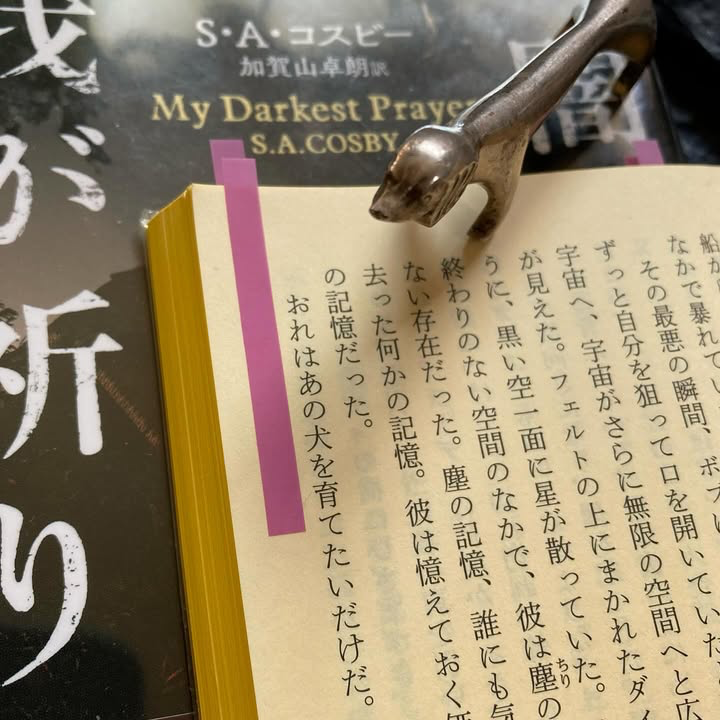 S・A・コスビー
加賀山卓朗訳
My Darkest Praye
S.A.COSBY
闇
我が祈り
船が
なかで暴れてい
その最悪の瞬間、
ずっと自分を狙って口を開いていた
宇宙へ、宇宙がさらに無限の空間へと広
が見えた。フェルトの上にまかれたダイ
うに、黒い空一面に星が散っていた。
終わりのない空間のなかで、彼は塵の
ちり
ない存在だった。塵の記憶、誰にも気
去った何かの記憶。彼は憶えておく
の記憶だった。
おれはあの犬を育てたいだけだ。